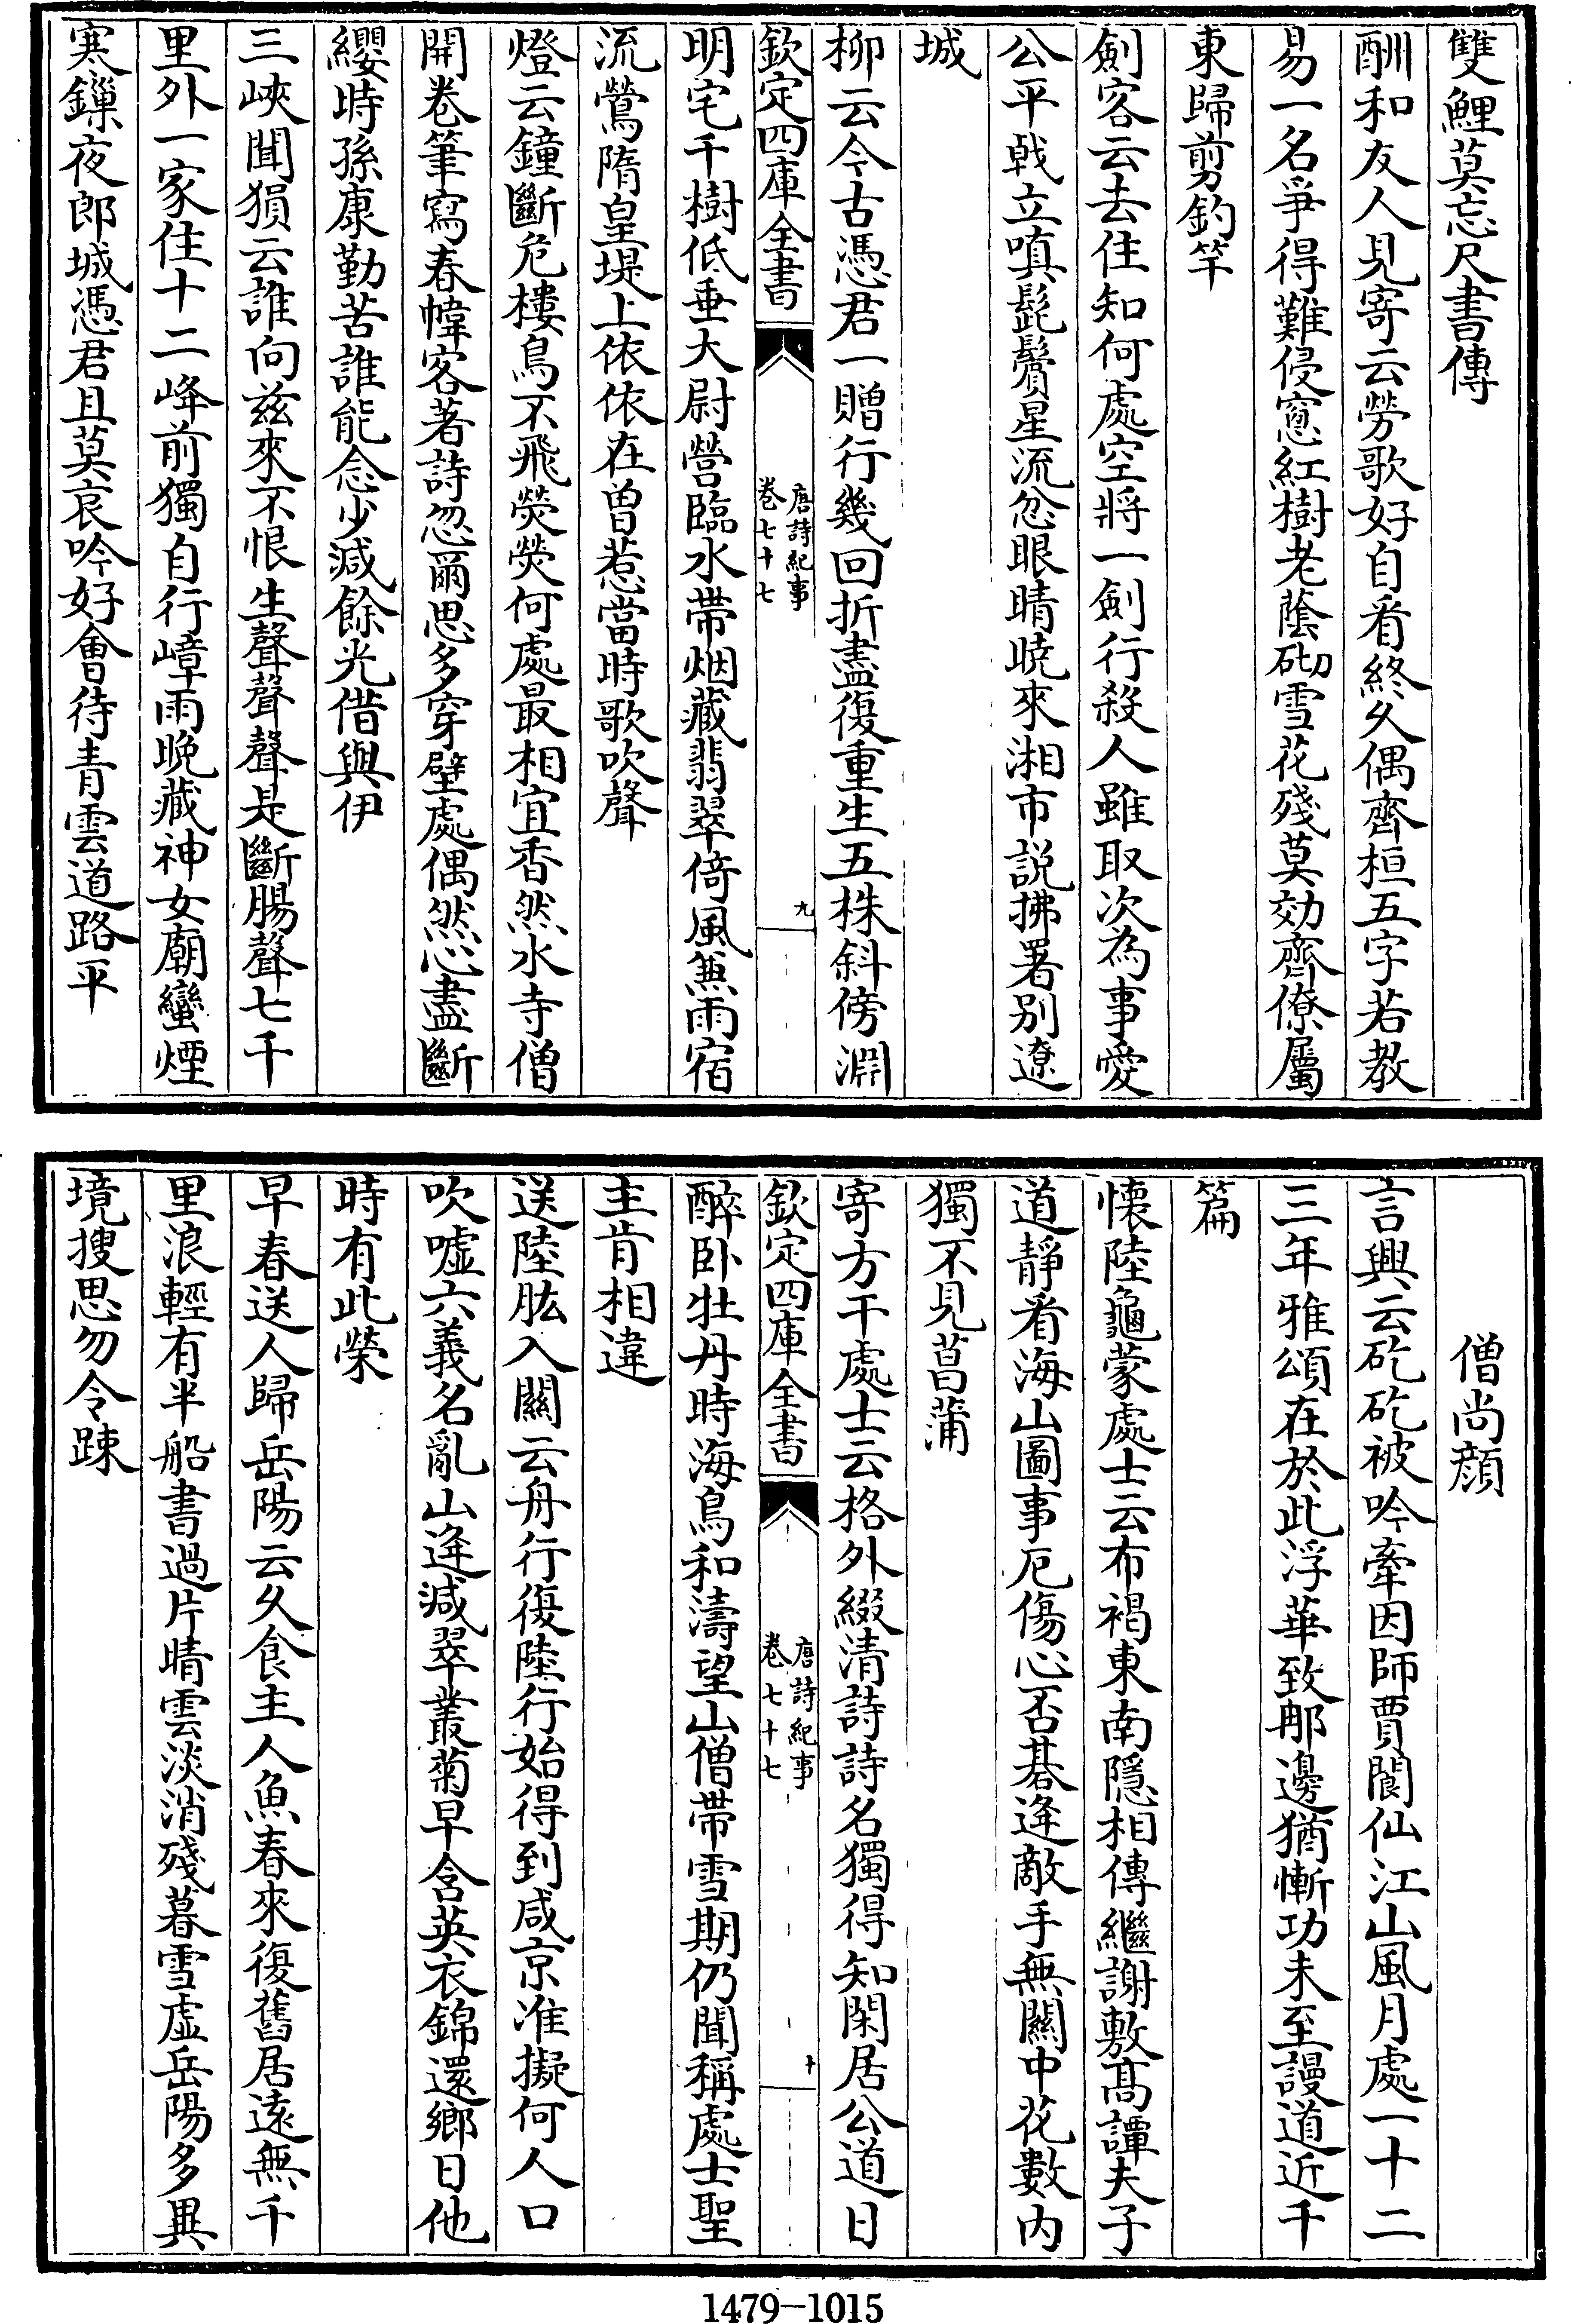 雙鯉莫忘尺書傳
酬和友人見寄云勞歌好自看終久偶齊桓五字若教
易一名爭得難侵窓紅樹老蔭砌雪花殘莫効齊僚屬
東歸剪釣竿
劍客云去住知何處空將一劍行殺人雖取次為事愛
公平戟立嗔髭鬢星流忿眼睛曉來湘市說拂署别遼
城
柳云今古憑君一贈行幾回折盡復重生五株斜傍淵
欽定四庫全書
唐詩紀事
卷七十七
九
明宅千樹低垂大尉營臨水帶烟藏翡翠倚風兼雨宿
流鶯隋皇堤上依依在曾惹當時歌吹聲
燈云鐘斷危樓鳥不飛熒熒何處最相宜香然水寺僧
開卷筆寫春幃客著詩忽爾思多穿壁處偶然心盡斷
纓時孫康勤苦誰能念少減餘光借與伊
三峽聞猿云誰向兹來不恨生聲聲聲是斷腸聲七千
里外一家住十二峰前獨自行嶂雨晚藏神女廟蠻煙
寒鏁夜郎城憑君且莫哀吟好會待青雲道路平
僧尚顔
言興云矻矻被吟牽因師賈閬仙江山風月處一十二
三年雅頌在於此浮華致那邊猶慚功未至謾道近千
篇
懐陸龜蒙處士云布褐東南隱相傳繼謝敷髙譚夫子
道靜看海山圖事厄傷心否碁逢敵手無關中花數内
獨不見菖蒲
寄方干處士云格外綴清詩詩名獨得知閑居公道日
欽定四庫全書
唐詩紀事
卷七十七
十
醉卧牡丹時海鳥和濤望山僧帶雪期仍聞稱處士聖
主肯相違
送陸肱入關云舟行復陸行始得到咸京准擬何人口
吹嘘六義名亂山逢減翠叢菊早含英衣錦還鄉日他
時有此榮
早春送人歸岳陽云久食主人魚春來復舊居遠無千
里浪輕有半船書過片晴雲淡消殘暮雪虛岳陽多異
境搜思勿令踈
1479-1015